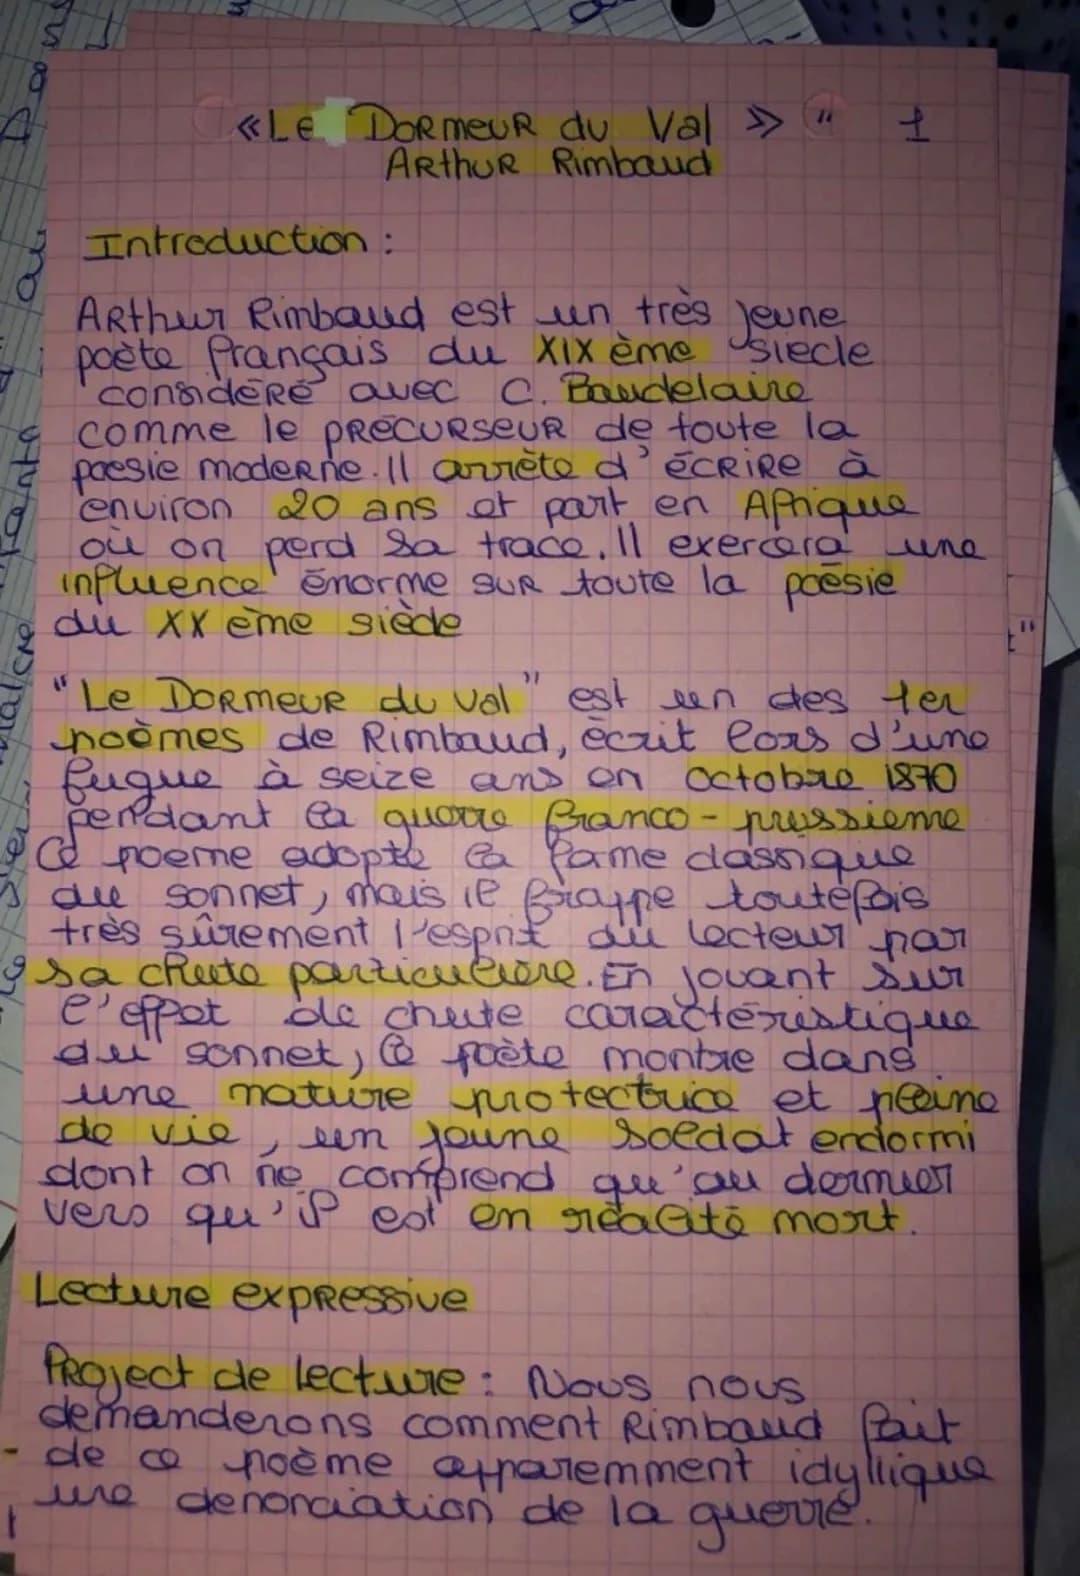 «Le Dormeur du Val » " 1
Arthur Rimbaud
Introduction :
Arthur Rimbaud est un très jeune
poète français du XIX ème siecle
considéré avec C. Baudelaire
comme le précurseur de toute la
poesie moderne. Il arrête d'écrire à
environ 20 ans et part en Afrique
où on perd sa trace. Il exercera une
influence énorme sur toute la poésie
du XX ème siècle
"Le Dormeur du val" est un des 1er
poèmes de Rimbaud, écrit lors d'une
fugue à seize ans en Octobre 1870
pendant la guerre franco-prussienne
Ce poeme adopte la forme classique
du sonnet, mais il frappe toutefois
très sûrement l'esprit du lecteur par
sa chute particulière. En jouant sur
l'effet de chute caractéristique
du sonnet, le poète montre dans
une nature protectrice et pleine
de vie, un jeune soldat endormi
dont on ne comprend qu'au dernier
vers qu'il est en réalité mort.
Lecture expressive
Project de lecture : Nous nous
demanderons comment Rimbaud fait
de ce poème apparemment idyllique
une denonciation de la guerre.